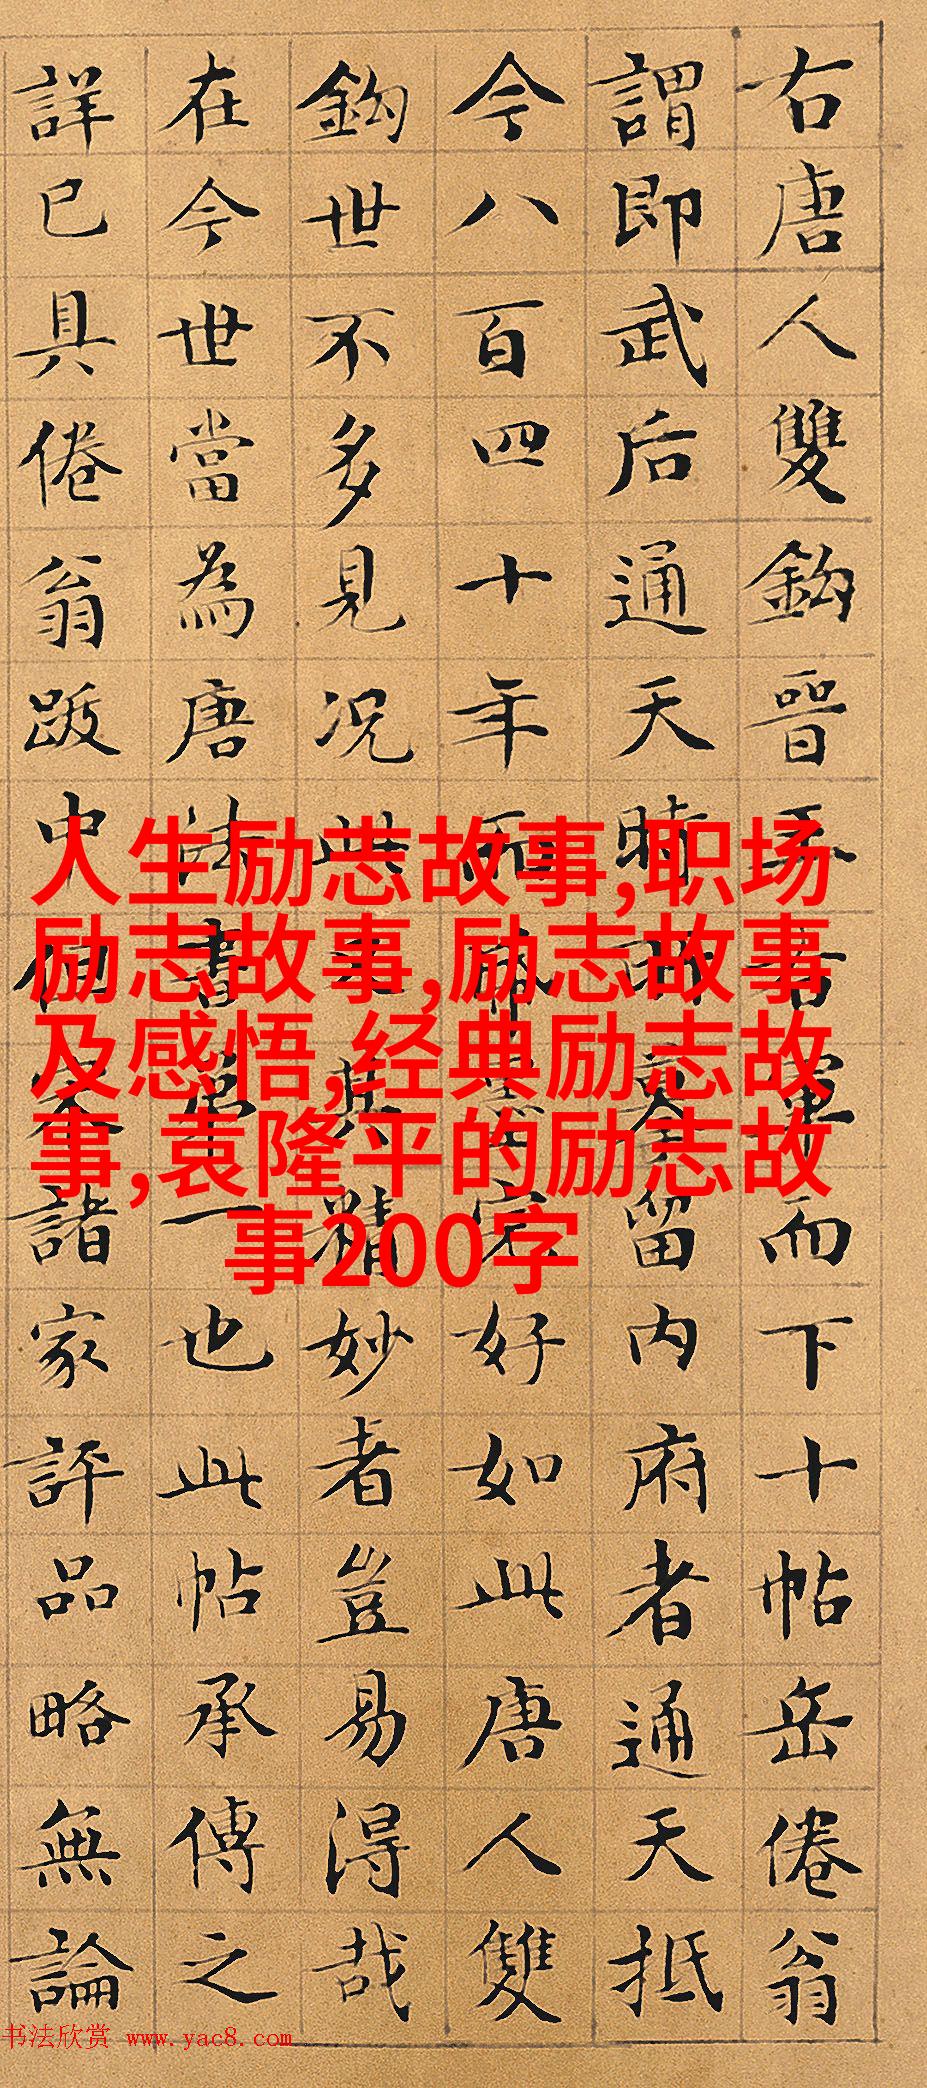 右唐人雙鈎晉王右軍而下十帖岳倦翁
謂即武后通天時所摹留内府者通天抵
今八百四十年而紙墨完好如此唐人雙
鈎世不多見况此又其精妙者豈易得哉
在今世當為唐法書第一也此帖承傳之
詳已具倦翁跋中但宋諸家評品略無論
人生励志故事,职场
励志故事,励志故事
及感悟,经典励志故
事,袁隆平的励志故
事200字
书法欣赏 www.yac8.com